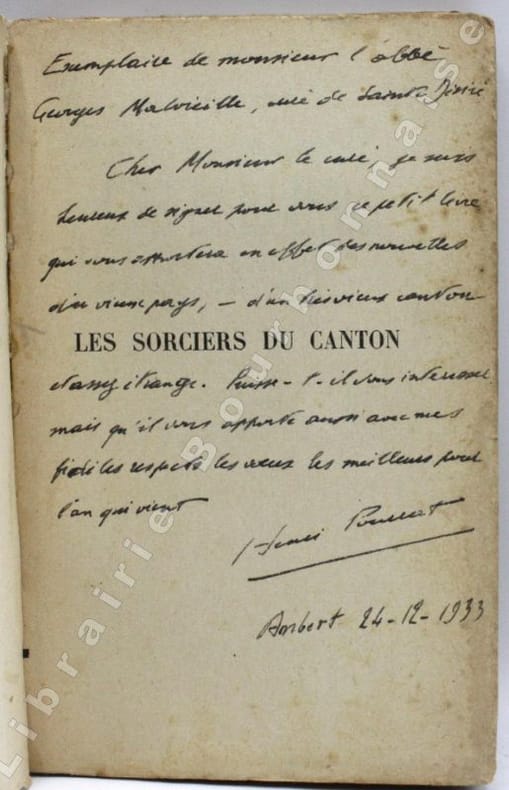 Exemplaire de monsieur l'abbé
Georges Malvieille, curé de Sainte Désiré
Cher Monsieur le curé, je suis
heureux de signer pour vous ce petit livre
qui vous apportera en effet des nouvelles
d'un vieux pays, – d'un très vieux canton
LES SORCIERS DU CANTON
et assez étrange. Puisse-t-il vous intéresser
mais qu'il vous apporte aussi avec mes
fidèles respects les vœux les meilleurs pour
l'an qui vient
Henri Pourrat
Ambert 24-12-1933
Librairie Bourbonnaise